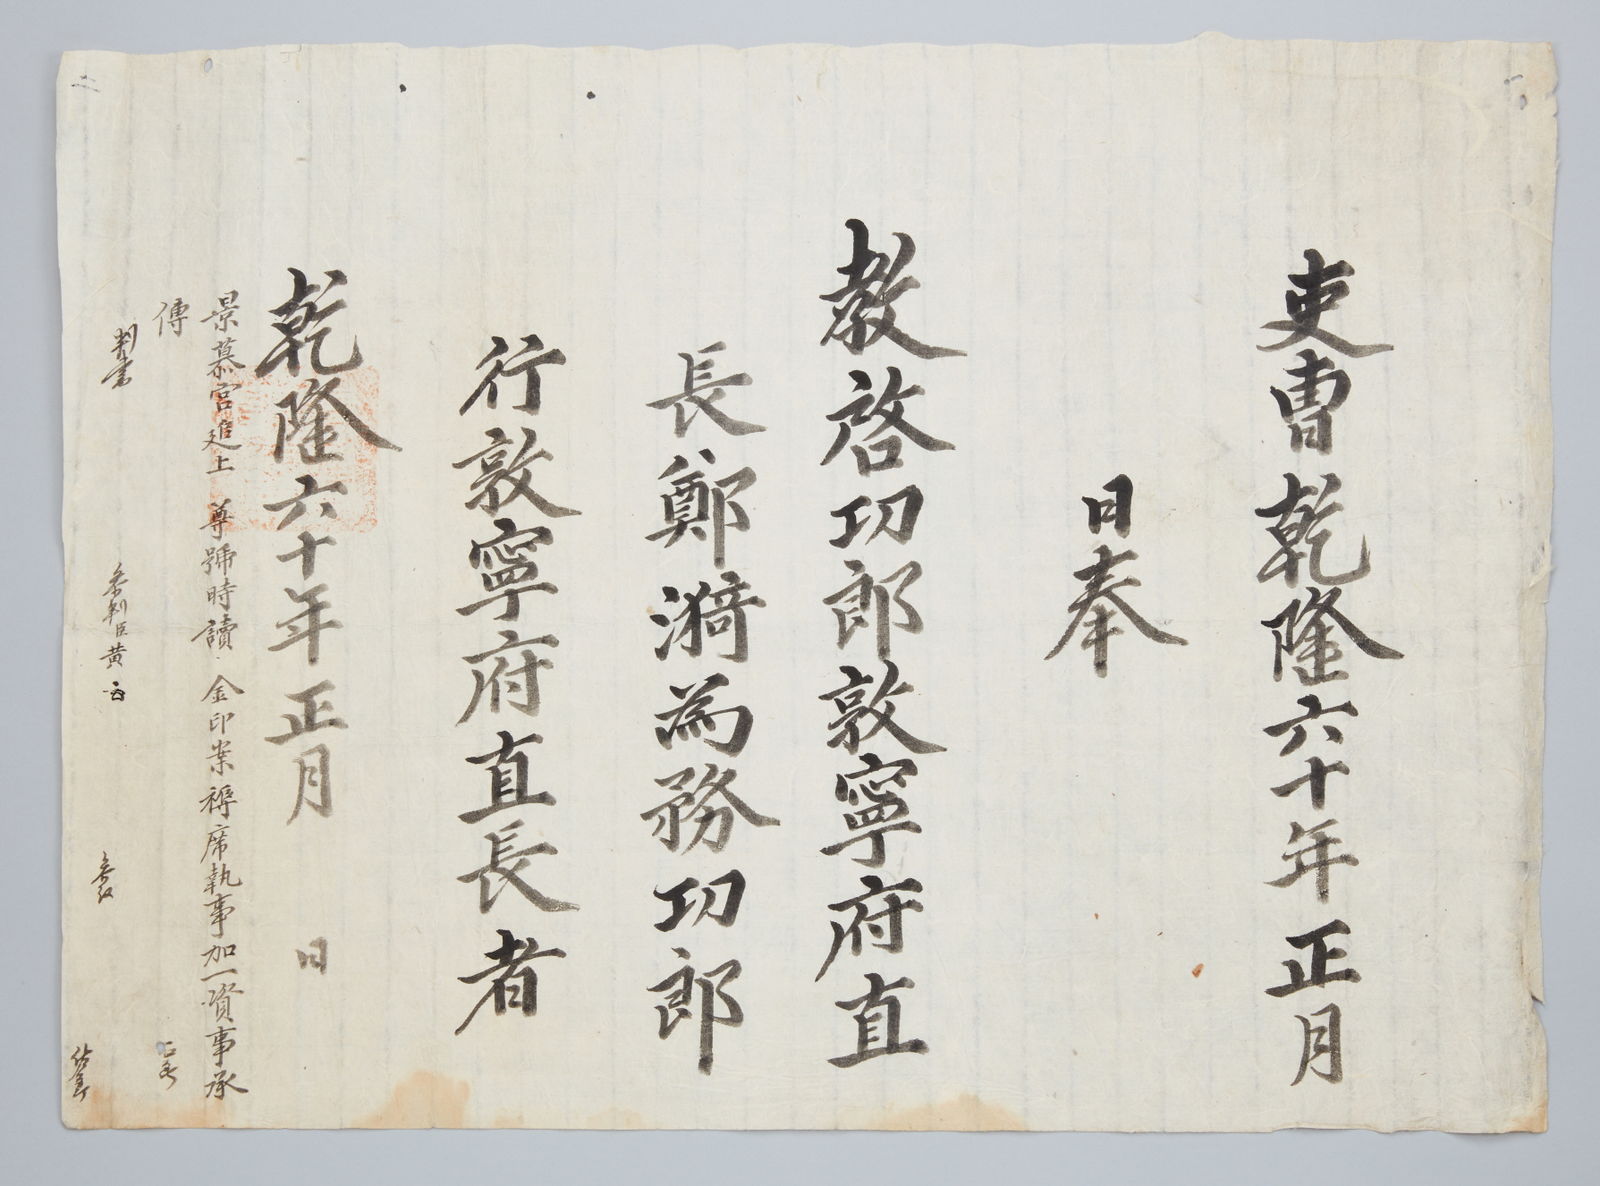 吏曹乾隆六十年正月
日奉
教啓功郎敦寧府直
長鄭漪為務功郎
行敦寧府直長者
乾隆六十年正月 日
景慕宮追上 尊號時讀 金印案褥席執事加一資事承
傳
判書
參判臣黃
參議